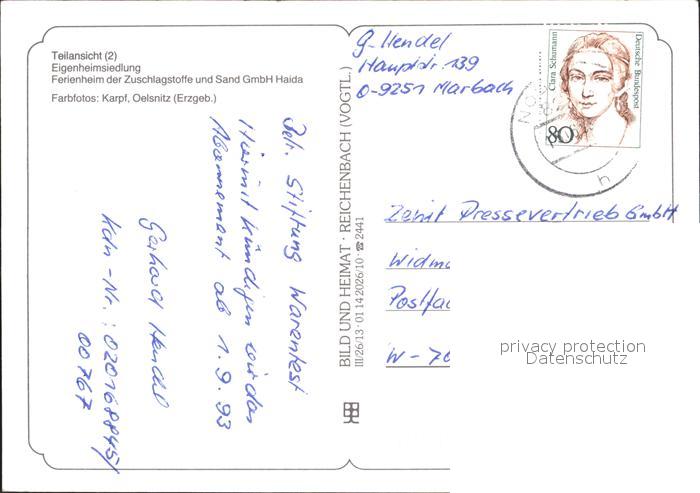 Teilansicht (2)
Eigenheimsiedlung
Ferienheim der Zuschlagstoffe und Sand GmbH Haida
Farbfotos: Karpf, Oelsnitz (Erzgeb.)
G. Hendel
Hauptstr. 139
O-9251 Marbach
Clara Schumann
Deutsche Bundespost
80
h
Betr. Stiftung Warentest
Hiermit kündigen wir das
Abonnement ab 1.9.93
Gerhard Hendel
Kdn-Nr.: 020168845/
00767
BILD UND HEIMAT · REICHENBACH (VOGTL.)
III/26/13 · 01 14 2026/10 · ☎ 2441
Zenit Pressevertrieb GmbH
Widm
Postfac
W-70
privacy protection
Datenschutz